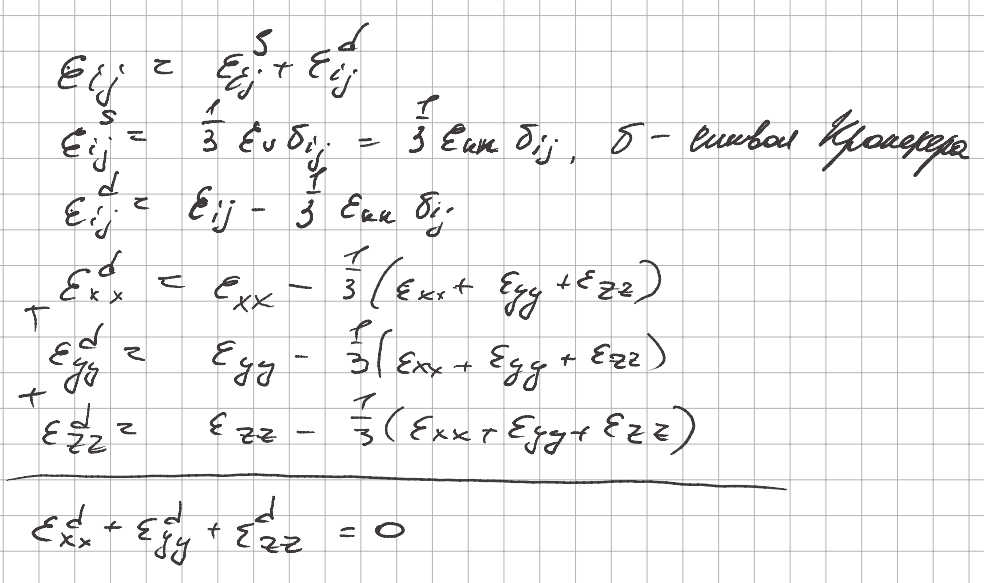 ε_ij = ε_ij^s + ε_ij^d
ε_ij^s = 1/3 ε_v δ_ij = 1/3 ε_кк δ_ij, δ - символ Кронекера
ε_ij^d = ε_ij - 1/3 ε_кк δ_ij
ε_xx^d = ε_xx - 1/3 (ε_xx + ε_yy + ε_zz)
+
ε_yy^d = ε_yy - 1/3 (ε_xx + ε_yy + ε_zz)
+
ε_zz^d = ε_zz - 1/3 (ε_xx + ε_yy + ε_zz)
ε_xx^d + ε_yy^d + ε_zz^d = 0